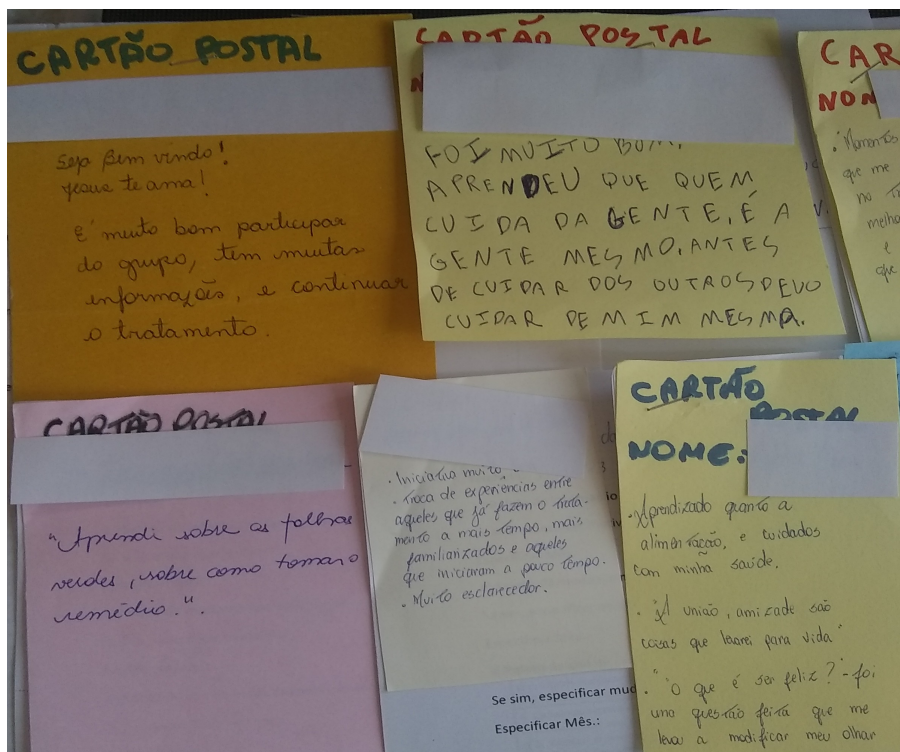 CARTÃO POSTAL
Seja Bem vindo!
Jesus te ama!
É muito bom participar
do grupo, tem muitas
informações, e continuar
o tratamento.
CARTÃO POSTAL
FOI MUITO BOM.
APRENDEU QUE QUEM
CUIDA DA GENTE, É A
GENTE MESMO, ANTES
DE CUIDAR DOS OUTROS DEVO
CUIDAR DE MIM MESMA.
CAR
NOM
que me
no
melho
e
que
CARTÃO POSTAL
"Aprendi sobre as folhas
verdes, sobre como tomar o
remédio.".
. Iniciativa muito
. Troca de experiências entre
aqueles que já fazem o trata-
mento a mais tempo, mais
familiarizados e aqueles
que iniciaram a pouco tempo.
. Muito esclarecedor.
Se sim, especificar mud
Especificar Mês.:
CARTÃO
POSTAL
NOME:
. Aprendizado quanto a
alimentação, e cuidados
com minha saúde.
. "A união, amizade são
coisas que levarei para vida"
. "O que é ser feliz?" - foi
uma questão feita que me
levou a modificar meu olhar